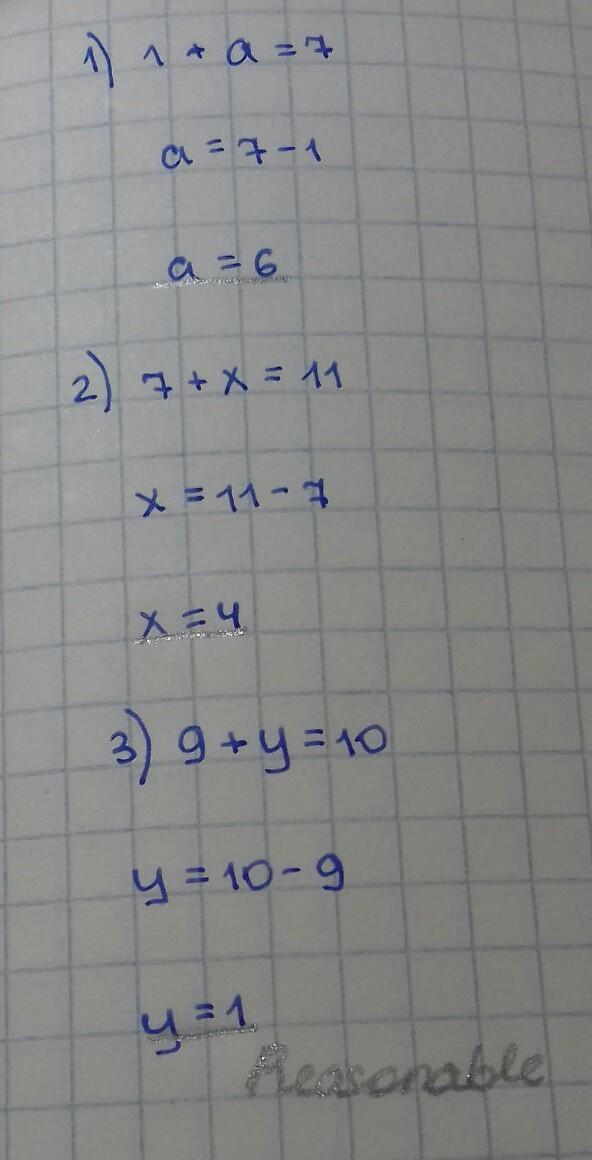 1) 1 + a = 7
a = 7 - 1
a = 6
2) 7 + x = 11
x = 11 - 7
x = 4
3) 9 + y = 10
y = 10 - 9
y = 1
Reasonable